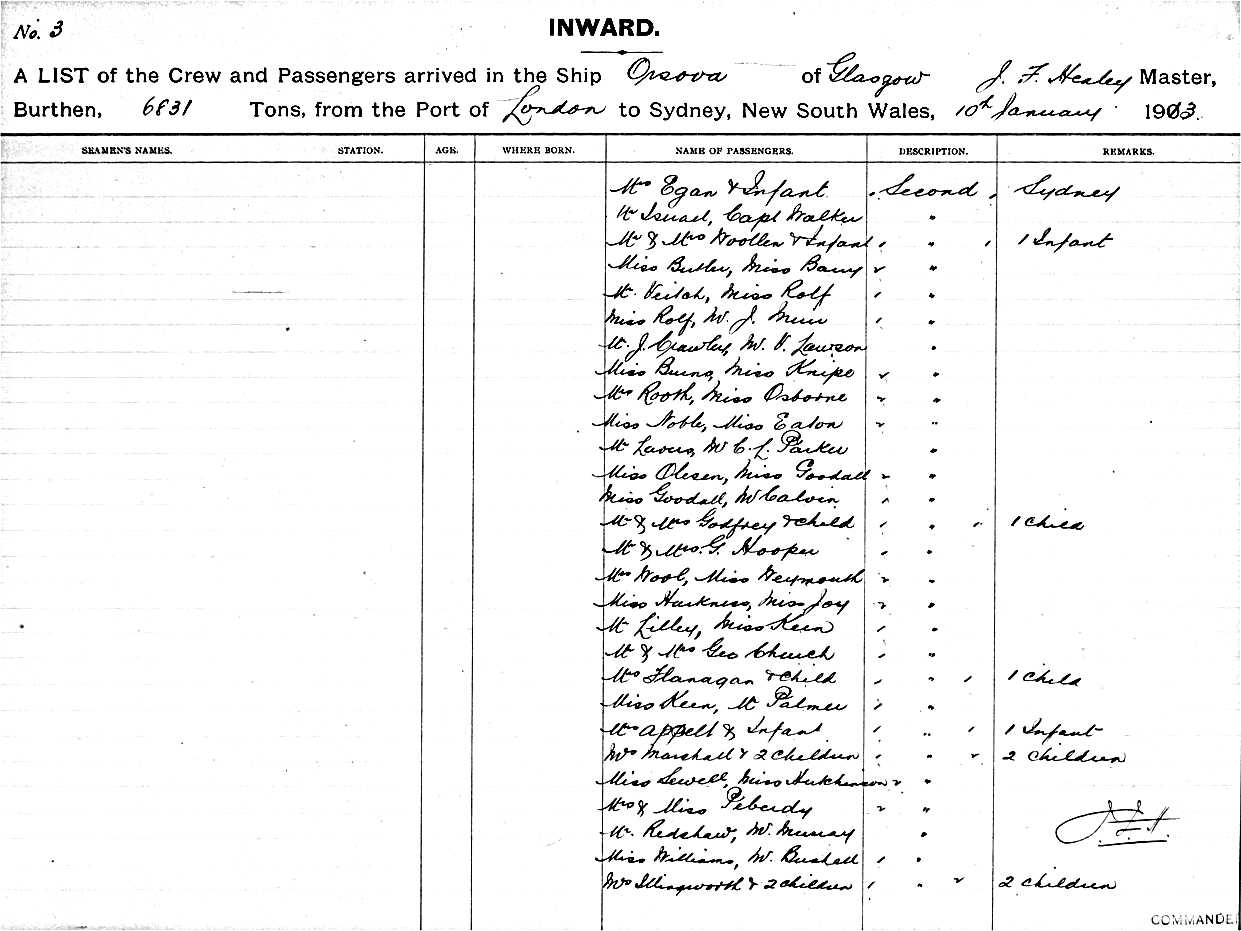 No. 3
INWARD.
A LIST of the Crew and Passengers arrived in the Ship Orsova of Glasgow J. F. Healey Master,
Burthen, 6831 Tons, from the Port of London to Sydney, New South Wales, 10th January 1903.
SEAMEN'S NAMES. STATION. AGE. WHERE BORN. NAME OF PASSENGERS. DESCRIPTION. REMARKS.
Mrs Egan & Infant Second Sydney
Mr Israel, Capt Walker "
Mr & Mrs Woollen & Infant " 1 Infant
Miss Butler, Miss Barry "
Mr. Veitch, Miss Rolf "
Miss Rolf, Mr. J. Muir "
Mr. J. Crawley, Mr. V. Lawson "
Miss Burns, Miss Knipe "
Mrs Rooth, Miss Osborne "
Miss Noble, Miss Eaton "
Mr Lavers, Mr C. L. Parker "
Miss Olesen, Miss Goodall "
Miss Goodall, Mr Calvin "
Mr & Mrs Godfrey & Child " 1 Child
Mr & Mrs. G. Hooper "
Mrs Wool, Miss Weymouth "
Miss Harkness, Miss Joy "
Mr Lilley, Miss Keen "
Mr & Mrs Geo Church "
Mrs Flanagan & Child " 1 Child
Miss Keen, Mr Palmer "
Mrs Appelt & Infant " 1 Infant
Mrs Marshall & 2 Children " 2 Children
Miss Sewell, Miss Hutchinson "
Mrs & Miss Peberdy "
Mr. Redshaw, Mr. Murray "
Miss Williams, Mr. Bushell "
Mrs Illingworth & 2 Children " 2 Children
J.F.H.
COMMANDE